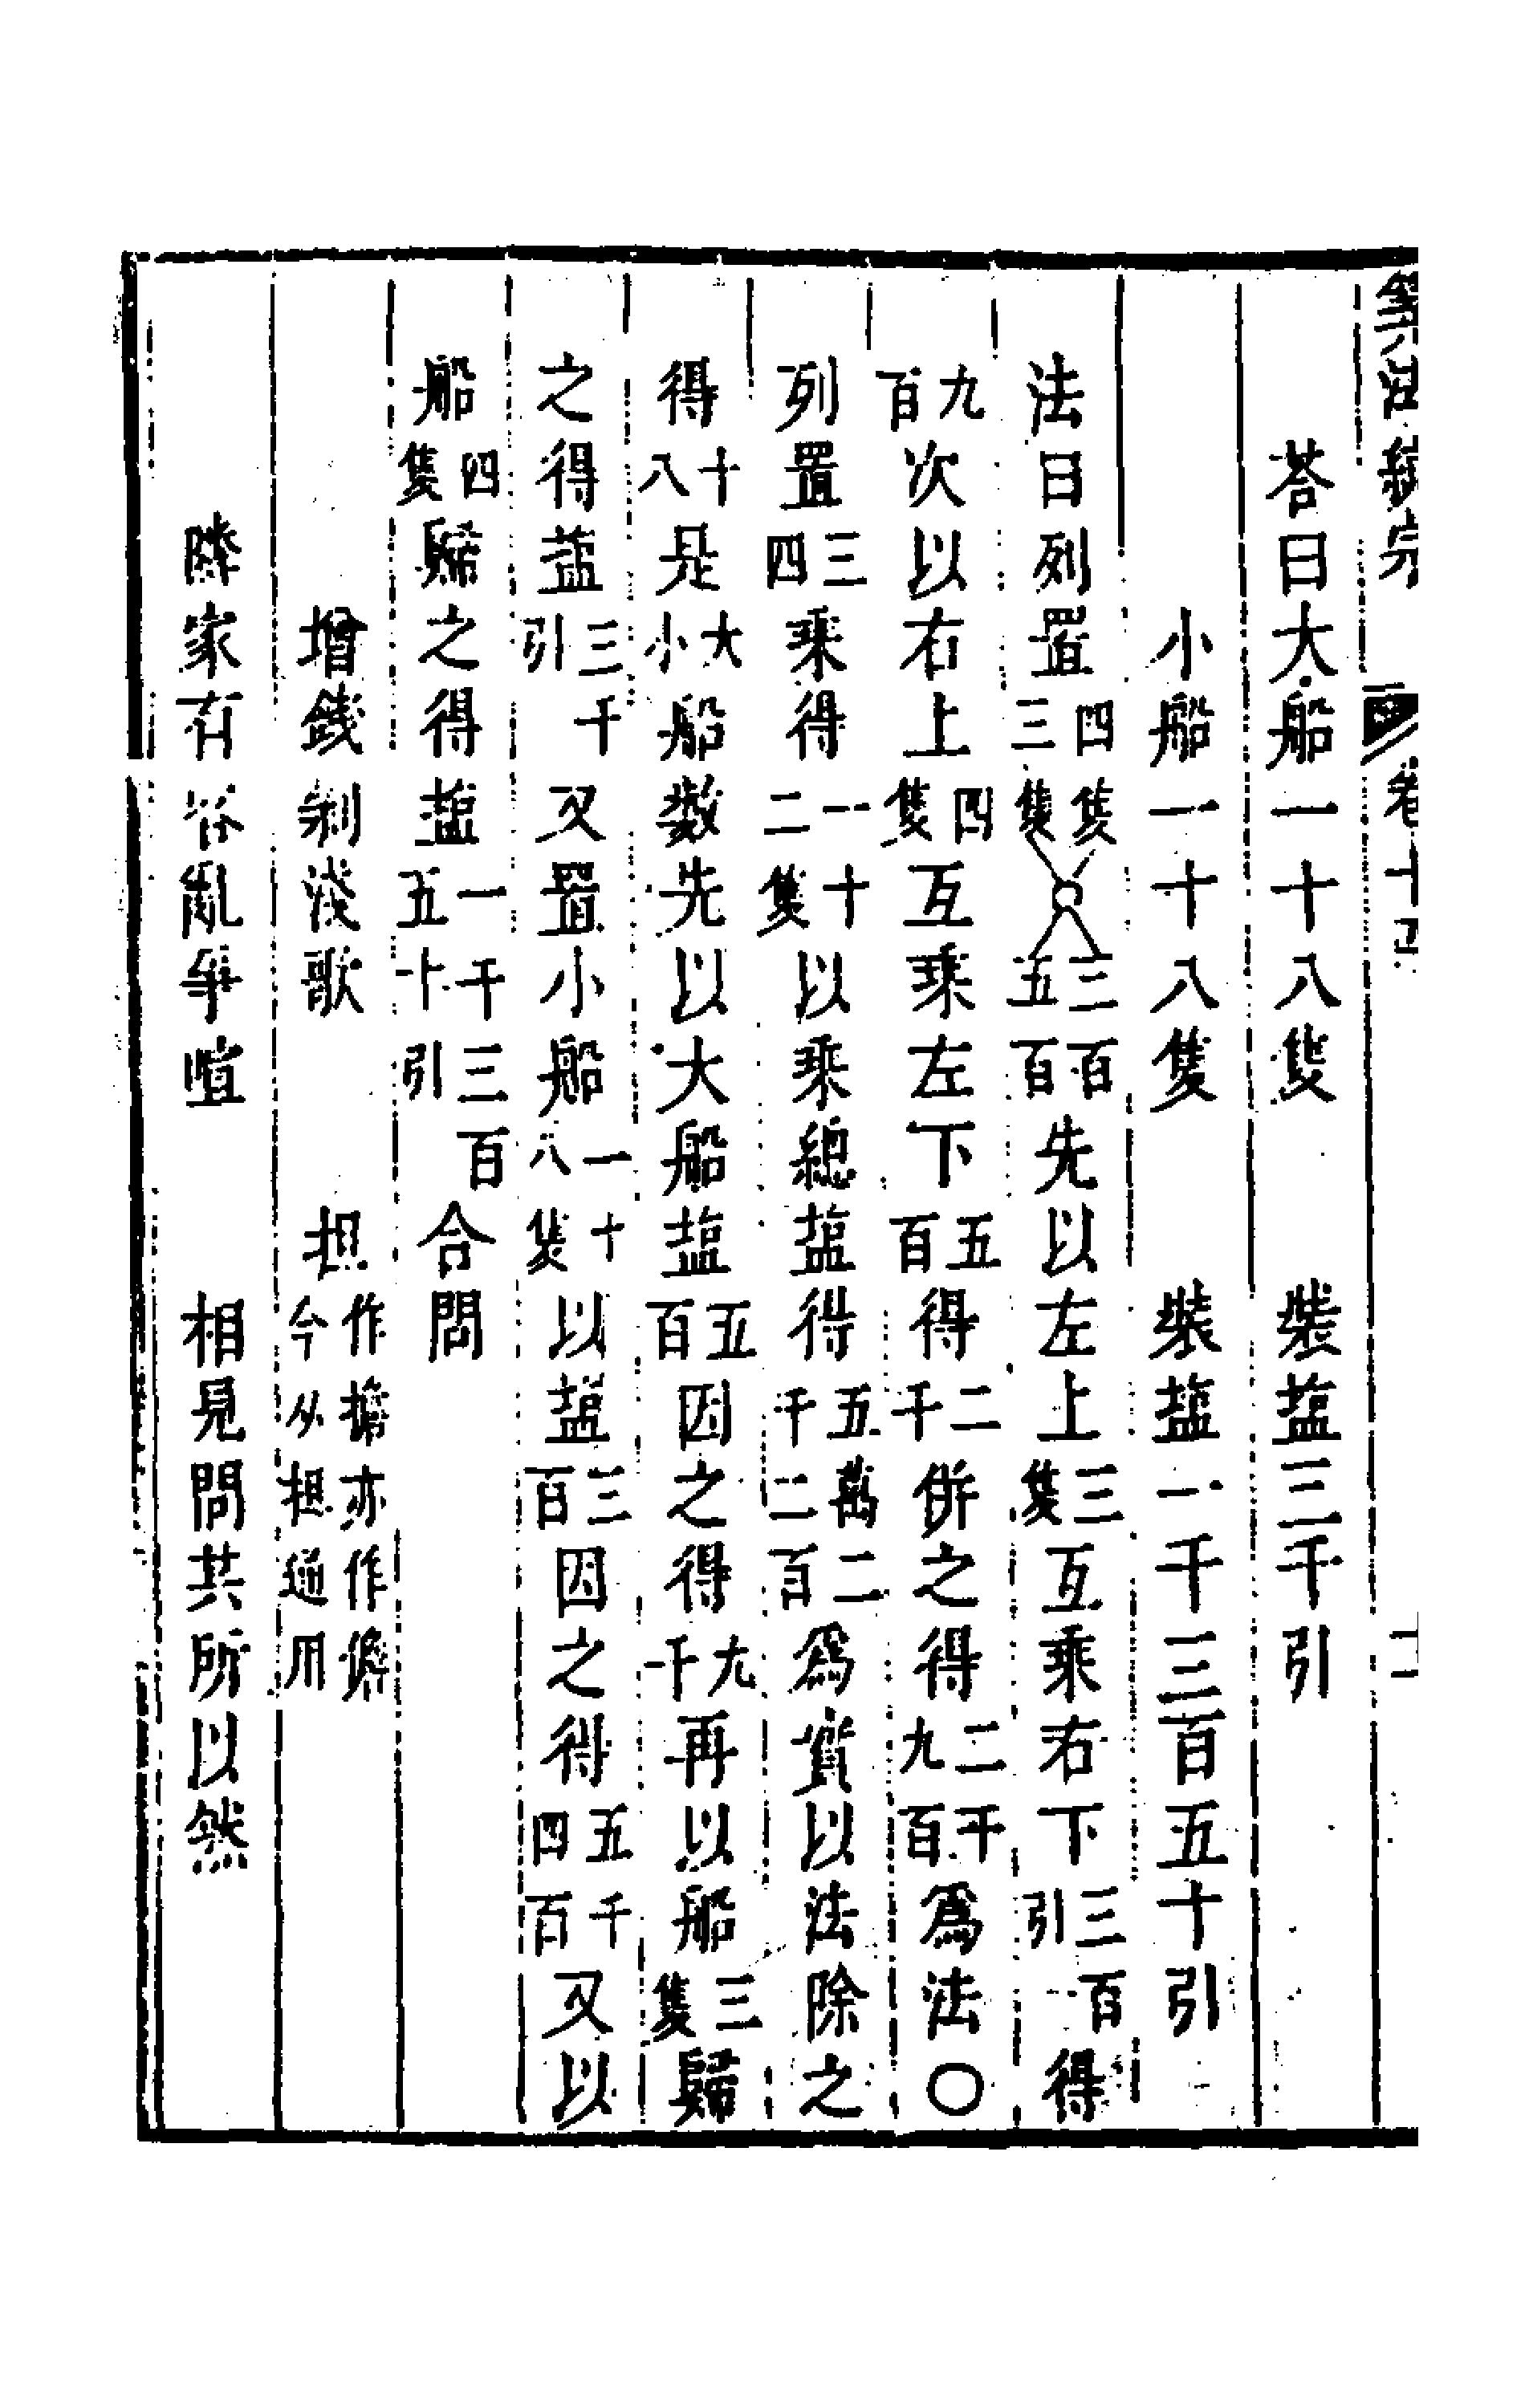 筭法統宗 卷十
荅曰大船一十八隻 裝塩三千引
小船一十八隻 裝塩一千三百五十引
法曰列置四隻三隻三百五百先以左上三隻互乘右下三百引得
九百次以右上四隻互乘左下五百得二千併之得二千九百爲法〇
列置三四乘得一十二隻以乘總塩得五萬二千二百爲實以法除之
得十八是大小船数先以大船塩五百因之得九千再以船三隻歸
之得塩三千引又置小船一十八隻以塩三百因之得五千四百又以
船四隻歸之得塩一千三百五十引合問
增錢剥淺歌 担作擔亦作儋今从担通用
隣家有客亂爭喧 相見問其所以然